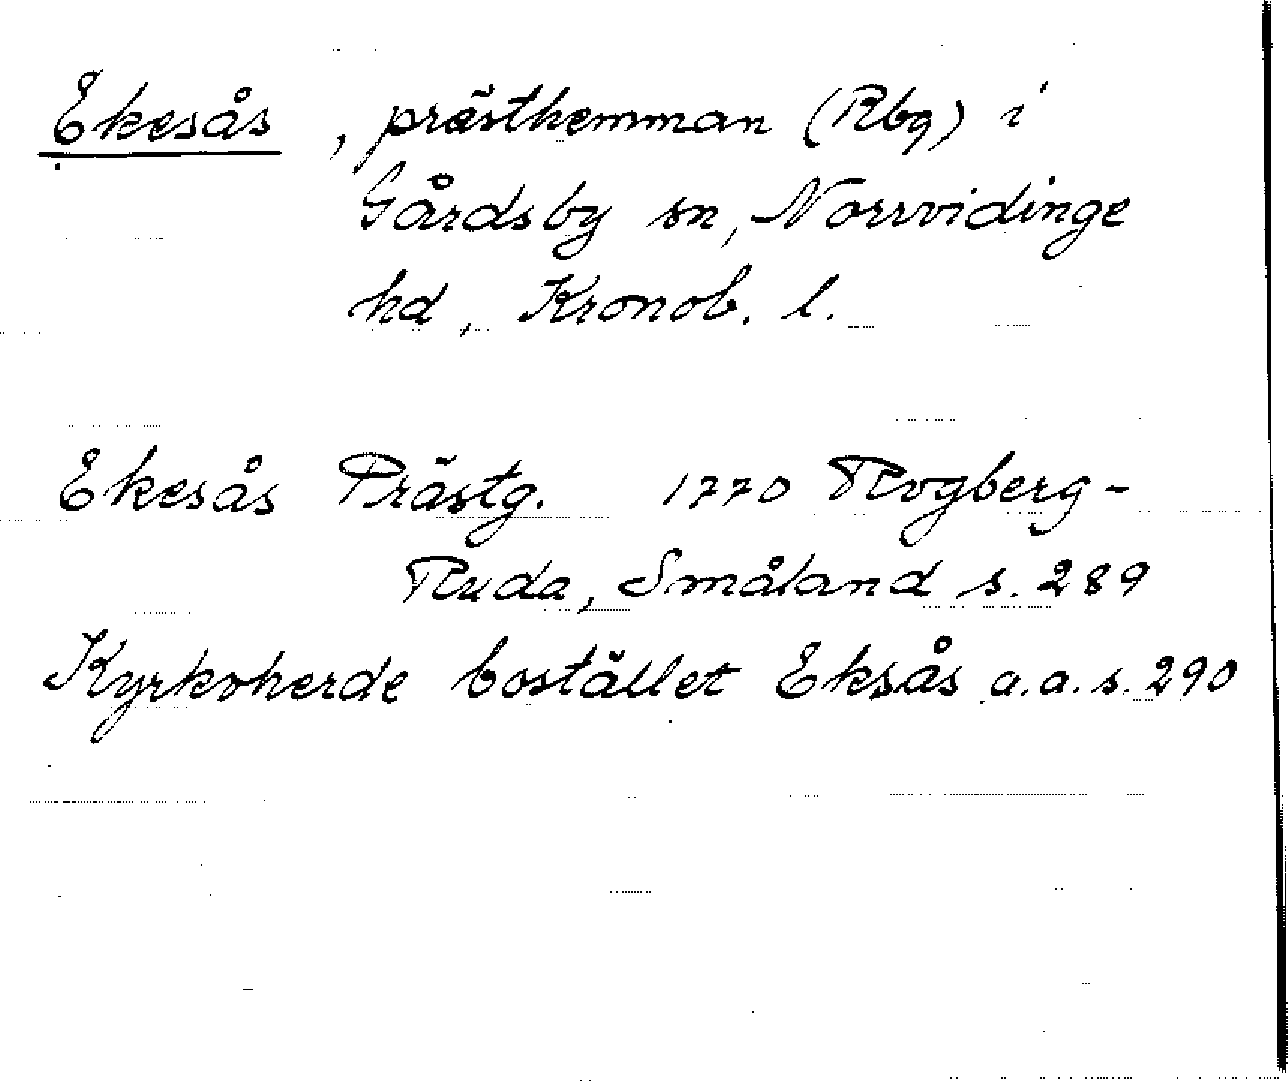 Ekesås, prästhemman (Rbg) i
Gårdsby sn, Norrvidinge
hd, Kronob. l.
Ekesås Prästg. 1770 Rogberg-
Ruda, Småland s. 289
Kyrkoherde bostället Eksås a.a. s. 290